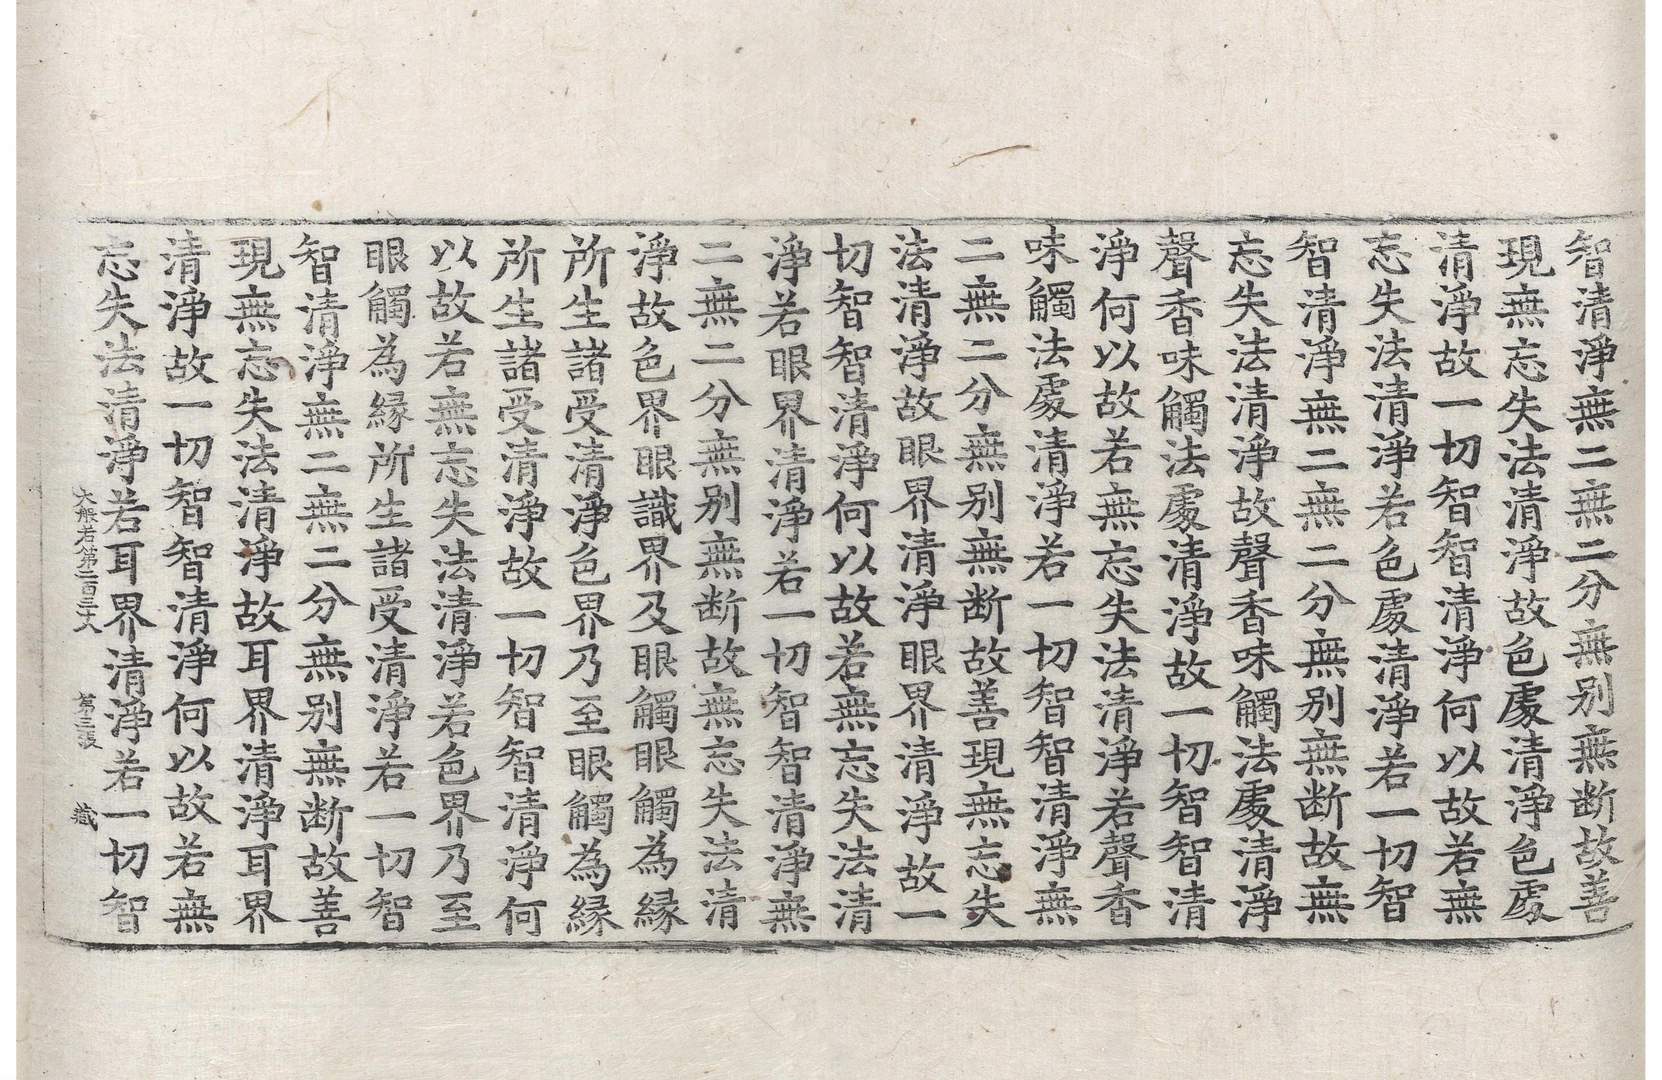 智清淨無二無二分無別無断故善
現無忘失法清淨故色處清淨色處
清淨故一切智智清淨何以故若無
忘失法清淨若色處清淨若一切智
智清淨無二無二分無別無断故無
忘失法清淨故聲香味觸法處清淨
聲香味觸法處清淨故一切智智清
淨何以故若無忘失法清淨若聲香
味觸法處清淨若一切智智清淨無
二無二分無別無断故善現無忘失
法清淨故眼界清淨眼界清淨故一
切智智清淨何以故若無忘失法清
淨若眼界清淨若一切智智清淨無
二無二分無別無断故無忘失法清
淨故色界眼識界及眼觸眼觸為縁
所生諸受清淨色界乃至眼觸為縁
所生諸受清淨故一切智智清淨何
以故若無忘失法清淨若色界乃至
眼觸為縁所生諸受清淨若一切智
智清淨無二無二分無別無断故善
現無忘失法清淨故耳界清淨耳界
清淨故一切智智清淨何以故若無
忘失法清淨若耳界清淨若一切智
大般若第二百三十八 第三張 藏